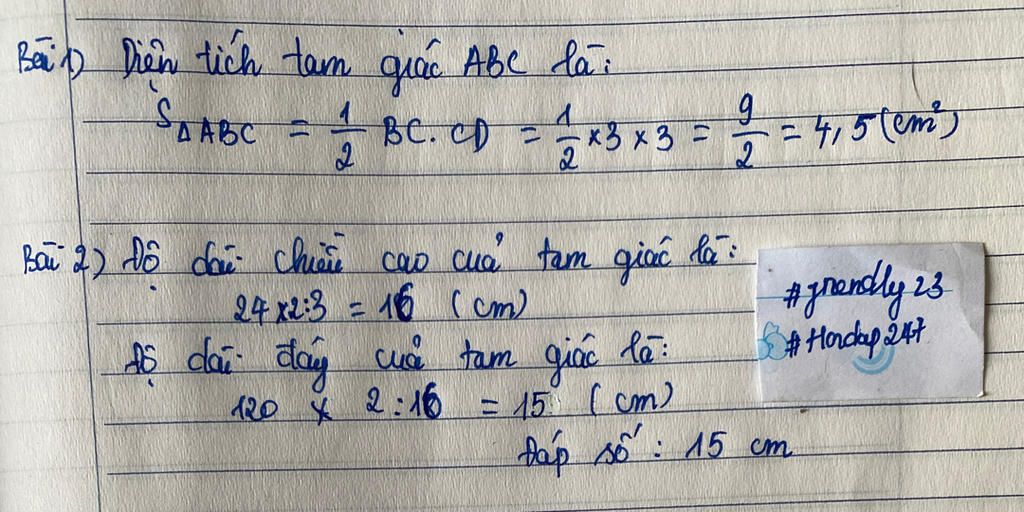 Bài 1) Diện tích tam giác ABC là:
SΔABC = 1/2 BC.CD = 1/2 x 3 x 3 = 9/2 = 4,5 (cm²)
Bài 2) Độ dài chiều cao của tam giác là:
24 x 2:3 = 16 (cm)
Độ dài đáy của tam giác là:
120 x 2:16 = 15 (cm)
Đáp số: 15 cm
23
#Hoidap247